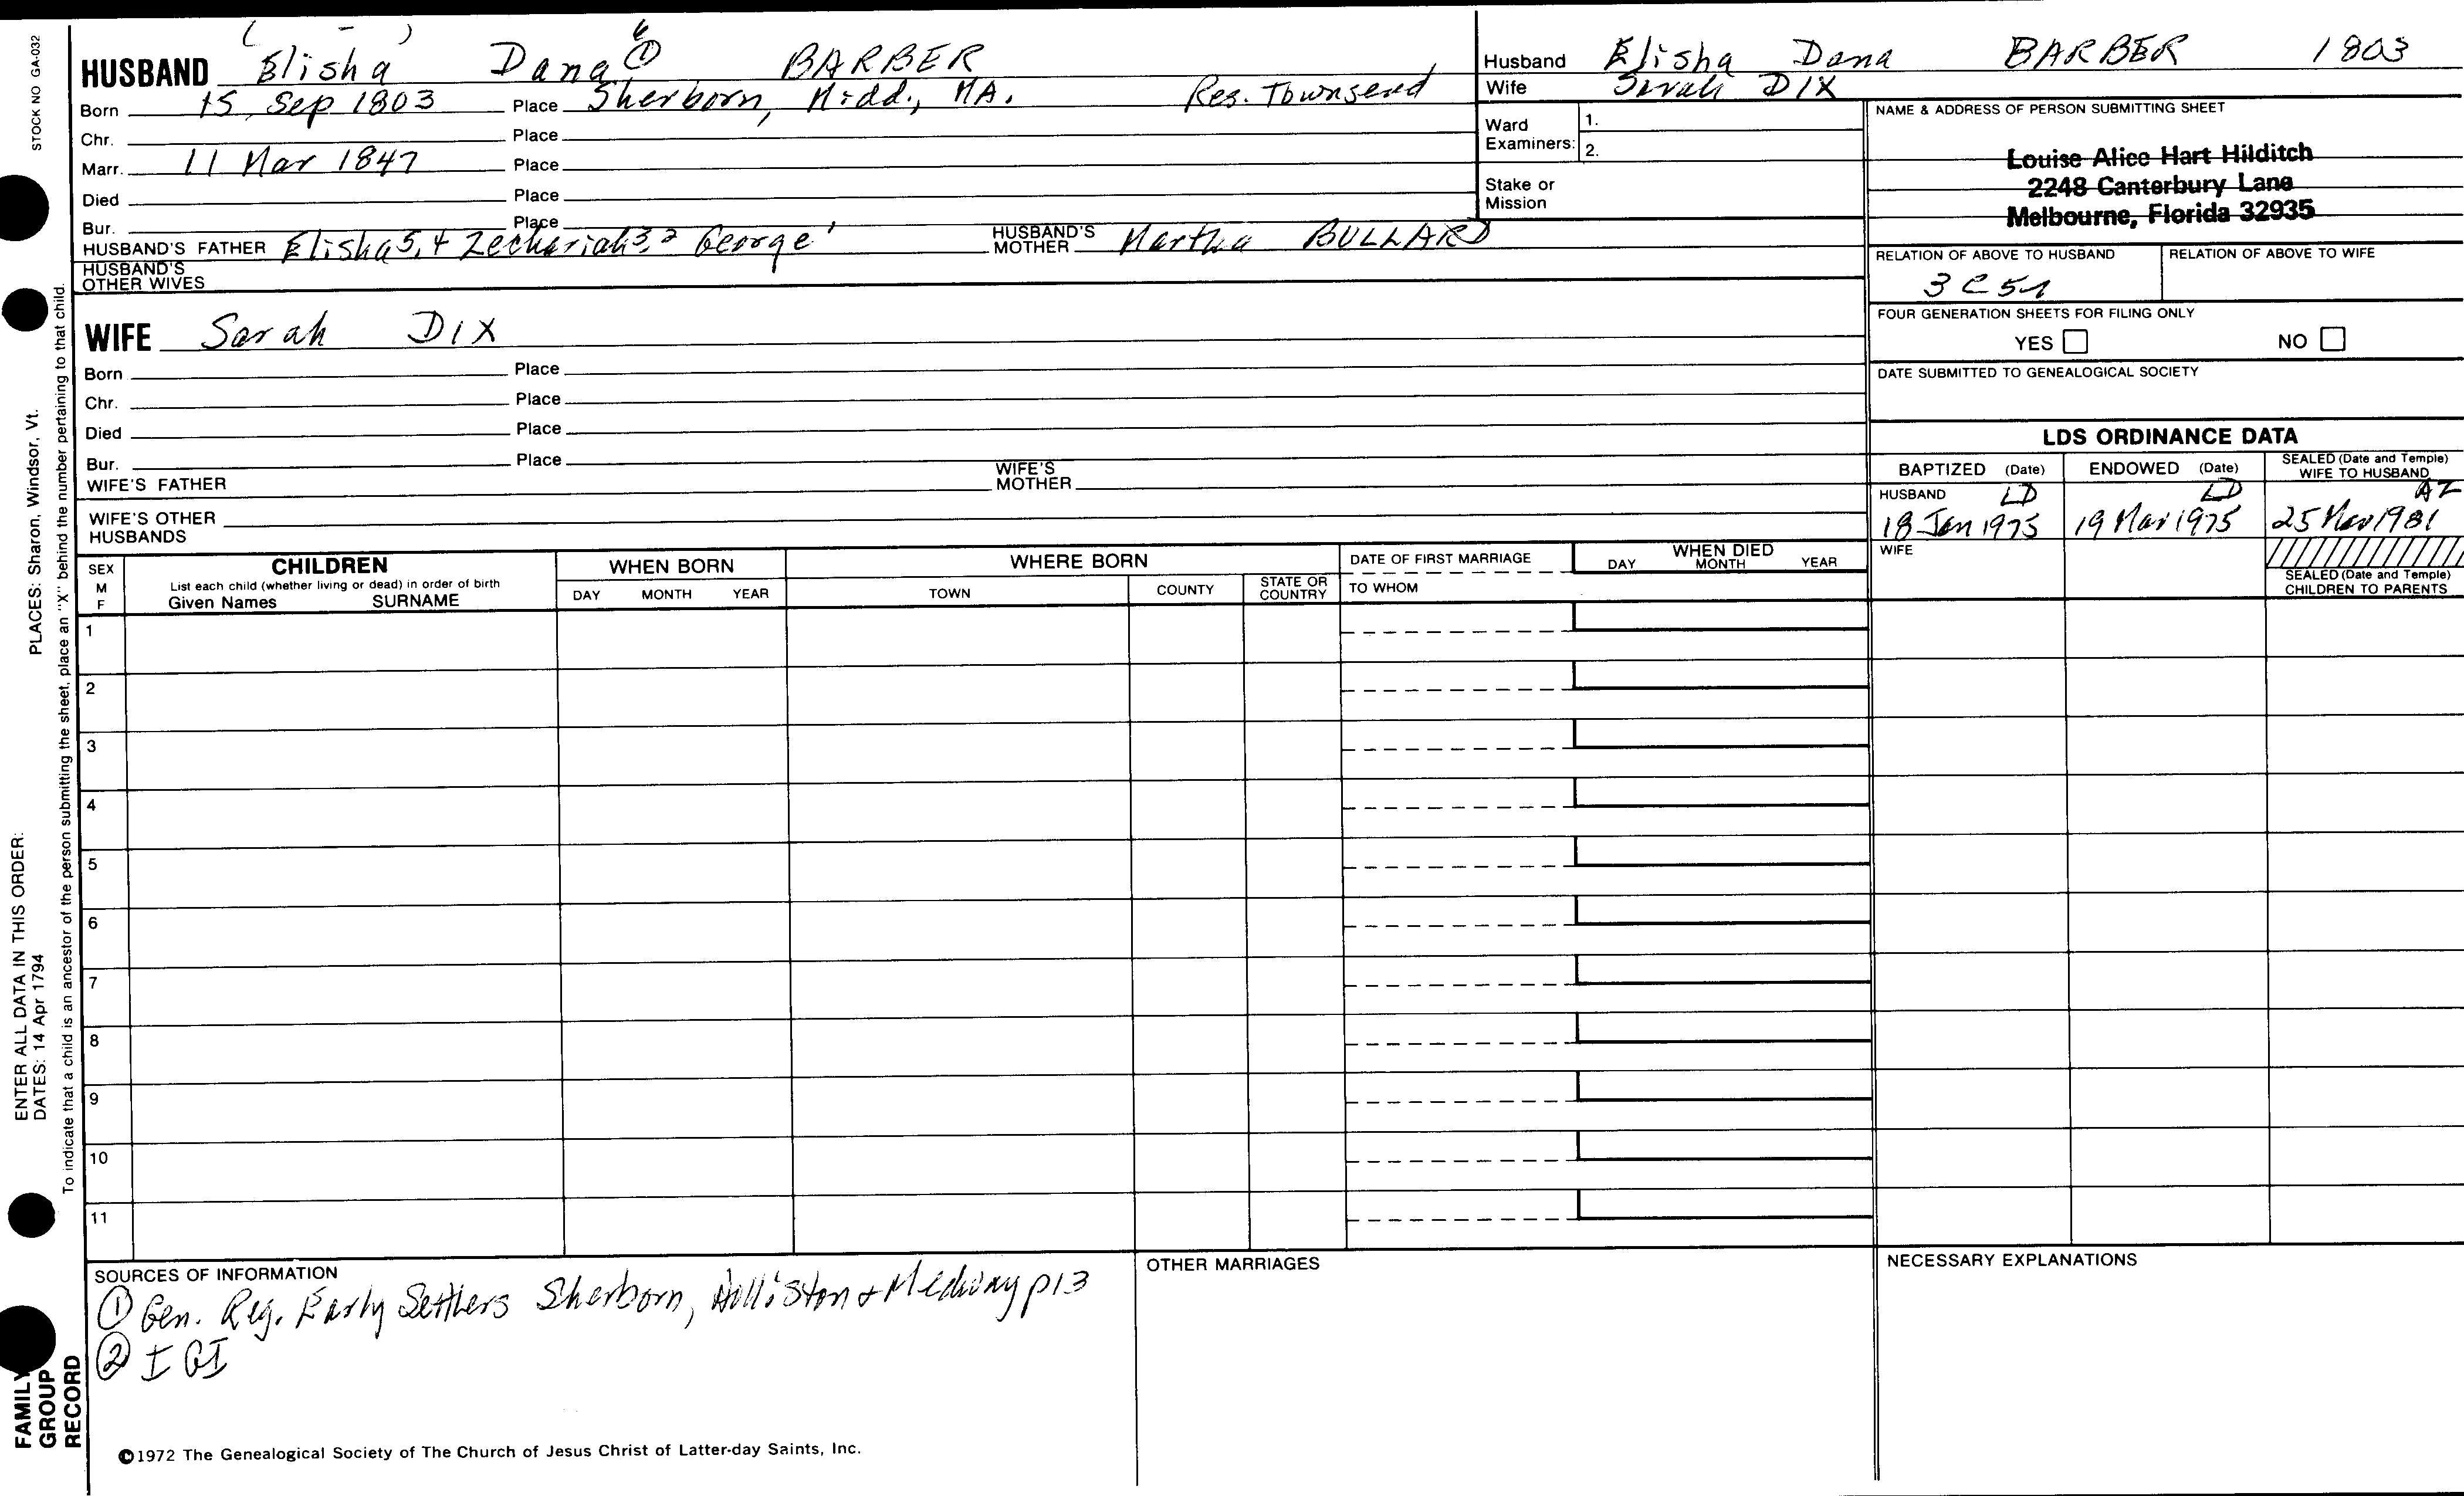 STOCK NO GA-032
PLACES: Sharon, Windsor, Vt.
ENTER ALL DATA IN THIS ORDER:
DATES: 14 Apr 1794
To indicate that a child is an ancestor of the person submitting the sheet, place an "X" behind the number pertaining to that child.
FAMILY GROUP RECORD
( - ) 6
HUSBAND Elisha Dana ① BARBER
Born 15 Sep 1803 Place Sherborn, Midd., MA. Res. Townsend
Chr. Place
Marr. 11 Mar 1847 Place
Died Place
Bur. Place
HUSBAND'S FATHER Elisha 5, 4 Zechariah 3, 2 George 1 HUSBAND'S MOTHER Martha BULLARD
HUSBAND'S OTHER WIVES
WIFE Sarah DIX
Born Place
Chr. Place
Died Place
Bur. Place
WIFE'S FATHER WIFE'S MOTHER
WIFE'S OTHER HUSBANDS
Husband Elisha Dana BARBER 1803
Wife Sarah DIX
Ward Examiners: 1.
2.
Stake or Mission
NAME & ADDRESS OF PERSON SUBMITTING SHEET
Louise Alice Hart Hilditch
2248 Canterbury Lane
Melbourne, Florida 32935
RELATION OF ABOVE TO HUSBAND RELATION OF ABOVE TO WIFE
3 C 5
FOUR GENERATION SHEETS FOR FILING ONLY
YES NO
DATE SUBMITTED TO GENEALOGICAL SOCIETY
LDS ORDINANCE DATA
BAPTIZED (Date) ENDOWED (Date) SEALED (Date and Temple) WIFE TO HUSBAND
HUSBAND LD LD AZ
18 Jan 1975 19 Mar 1975 25 Mar 1981
WIFE
SEALED (Date and Temple)
CHILDREN TO PARENTS
SEX M F CHILDREN WHEN BORN WHERE BORN DATE OF FIRST MARRIAGE WHEN DIED
List each child (whether living or dead) in order of birth
Given Names SURNAME DAY MONTH YEAR TOWN COUNTY STATE OR COUNTRY TO WHOM DAY MONTH YEAR
1
2
3
4
5
6
7
8
9
10
11
SOURCES OF INFORMATION
① Gen. Reg. Early Settlers Sherborn, Holliston & Medway p13
② IGI
OTHER MARRIAGES
NECESSARY EXPLANATIONS
©1972 The Genealogical Society of The Church of Jesus Christ of Latter-day Saints, Inc.